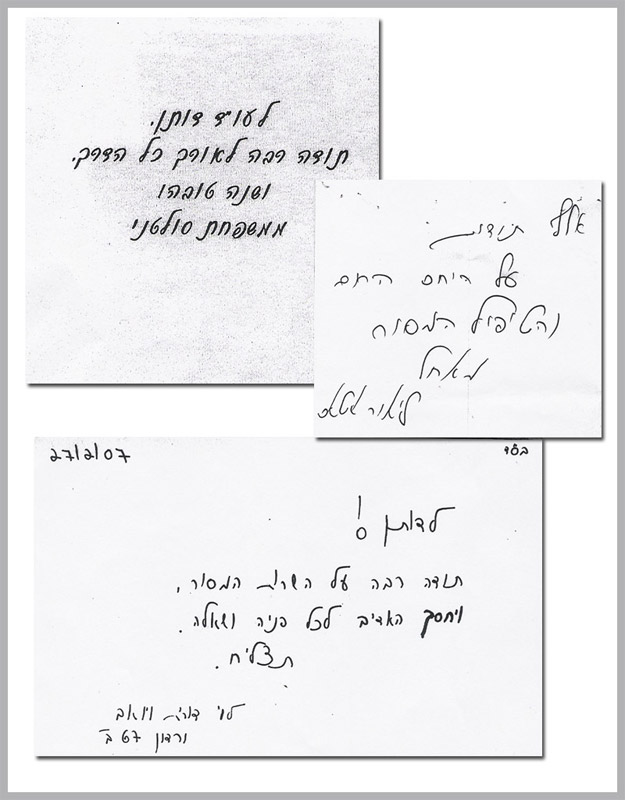 לעו"ד דותן.
תודה רבה לאורך כל הדרך.
ושנה טובה!
ממשפחת סולטני
אלף תודות
על היחס החם
והטיפול המסור
מאחל
ליאור
27/2/07
בס"ד
לדותן!
תודה רבה על השרות המסור,
ויחסך האדיב לכל פניה ושאלה.
תצליח.
דורית ויואב
ורדון 67 ב'